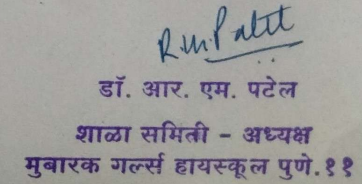 R.M. Patel
डॉ. आर. एम. पटेल
शाळा समिती - अध्यक्ष
मुबारक गर्ल्स हायस्कूल पुणे.११